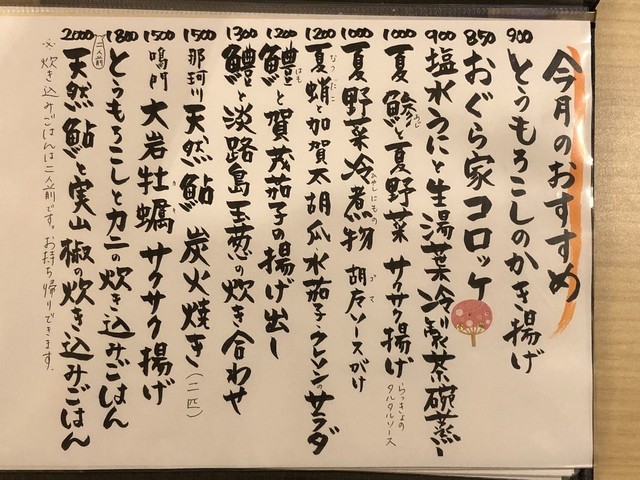 今月のおすすめ
900 とうもろこしのかき揚げ
850 おぐら家コロッケ
900 塩水うにと生湯葉冷製茶碗蒸し
1000 夏鯵と夏野菜 サクサク揚げ らっきょのタルタルソース
1000 夏野菜冷煮物 胡麻ソースがけ
1200 夏蛸と加賀太胡瓜水茄子クレソンのサラダ
1200 鱧と賀茂茄子の揚げ出し
1300 鱧と淡路島玉葱の炊き合わせ
1500 那珂川天然鮎 炭火焼き(二匹)
1500 鳴門 大岩牡蠣 サクサク揚げ
1800 (二人前) とうもろこしとカニの炊き込みごはん
2000 天然鮎と実山椒の炊き込みごはん
※炊き込みごはんは二人前です。お持ち帰りできます。